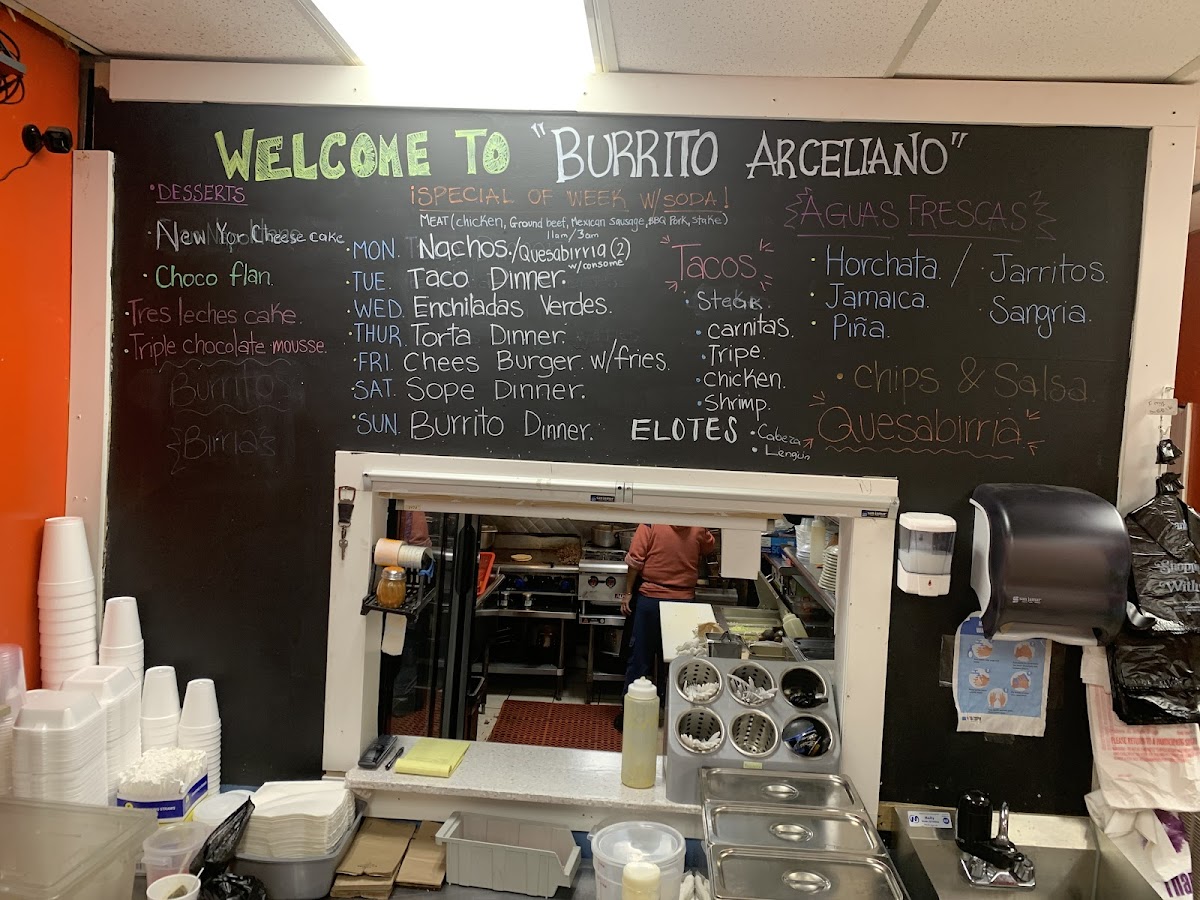 WELCOME TO "BURRITO ARCELIANO"
• DESSERTS
New Yor Cheese cake
• Choco flan.
• Tres leches cake.
• Triple chocolate mousse.
Burrito
Birria
¡SPECIAL OF WEEK W/SODA!
MEAT (chicken, Ground beef, Mexican Sausage, BBQ Pork, Stake)
11am/3am
• MON. Nachos./Quesabirria (2)
w/consome
• TUE. Taco Dinner.
• WED. Enchiladas Verdes.
• THUR. Torta Dinner.
• FRI. Chees Burger. w/fries.
• SAT. Sope Dinner.
• SUN. Burrito Dinner.
Tacos
• Steak.
• carnitas.
• Tripe.
• chicken.
• Shrimp.
• Cabeza
• Lengua
ELOTES
AGUAS FRESCAS
• Horchata. / • Jarritos.
• Jamaica. • Sangria.
• Piña.
• Chips & Salsa.
Quesabirria